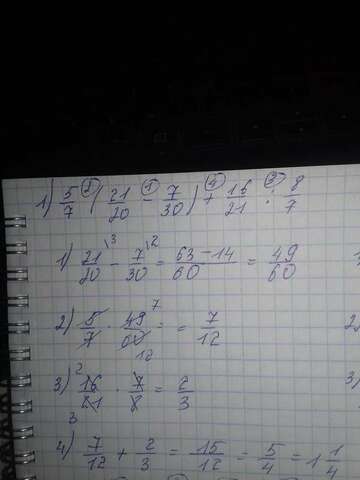 1) 5/7 ② (21/20 ① - 7/30) ④ + 16/21 ③ : 8/7
1) 21/20 \3 - 7/30 \2 = 63-14/60 = 49/60
2) 5/7 · 49/60 7 12 = = 7/12
3) 2 16/21 3 · 7/8 = 2/3
4) 7/12 + 2/3 = 15/12 = 5/4 = 1 1/4